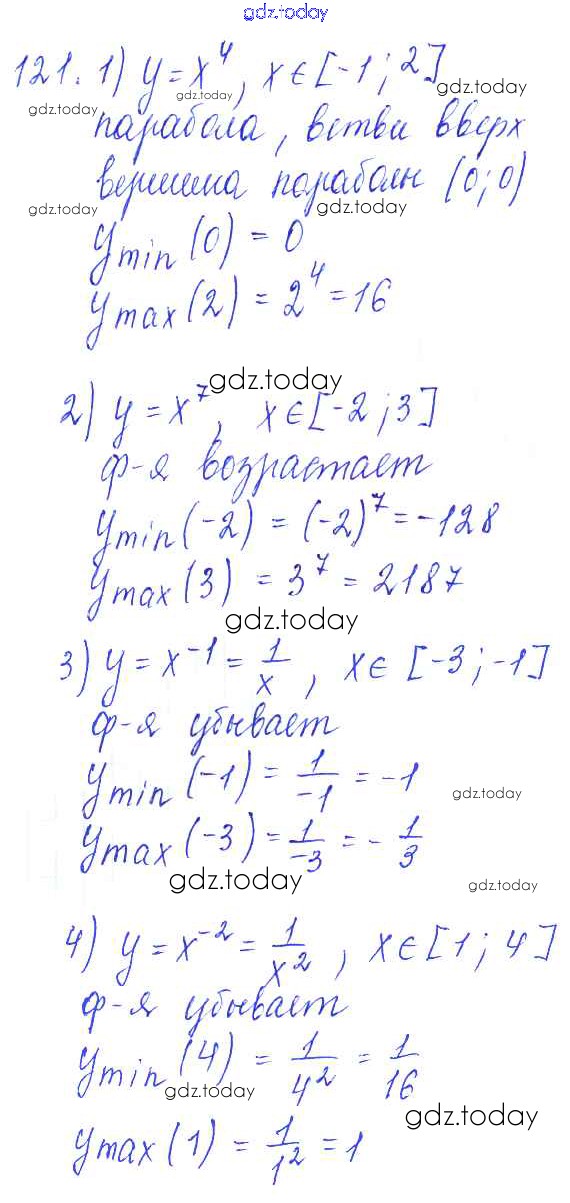 gdz.today
121. 1) y = x⁴, x ∈ [-1; 2]
gdz.today gdz.today gdz.today
парабола, ветви вверх
вершина параболы (0; 0)
gdz.today gdz.today
y min (0) = 0
y max (2) = 2⁴ = 16
gdz.today
2) y = x⁷, x ∈ [-2; 3]
ф-я возрастает
y min (-2) = (-2)⁷ = -128
y max (3) = 3⁷ = 2187
gdz.today
3) y = x⁻¹ = 1/x, x ∈ [-3; -1]
ф-я убывает
y min (-1) = 1/-1 = -1
gdz.today
y max (-3) = 1/-3 = - 1/3
gdz.today gdz.today
4) y = x⁻² = 1/x², x ∈ [1; 4]
ф-я убывает
y min (4) = 1/4² = 1/16
gdz.today gdz.today
y max (1) = 1/1² = 1